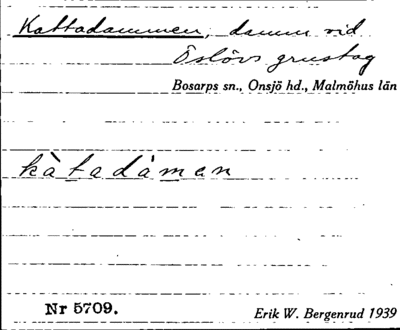 Kattadammen, damm vid
Öslövs grustag
Bosarps sn., Onsjö hd., Malmöhus län
kàtadámen
Nr 5709.
Erik W. Bergenrud 1939